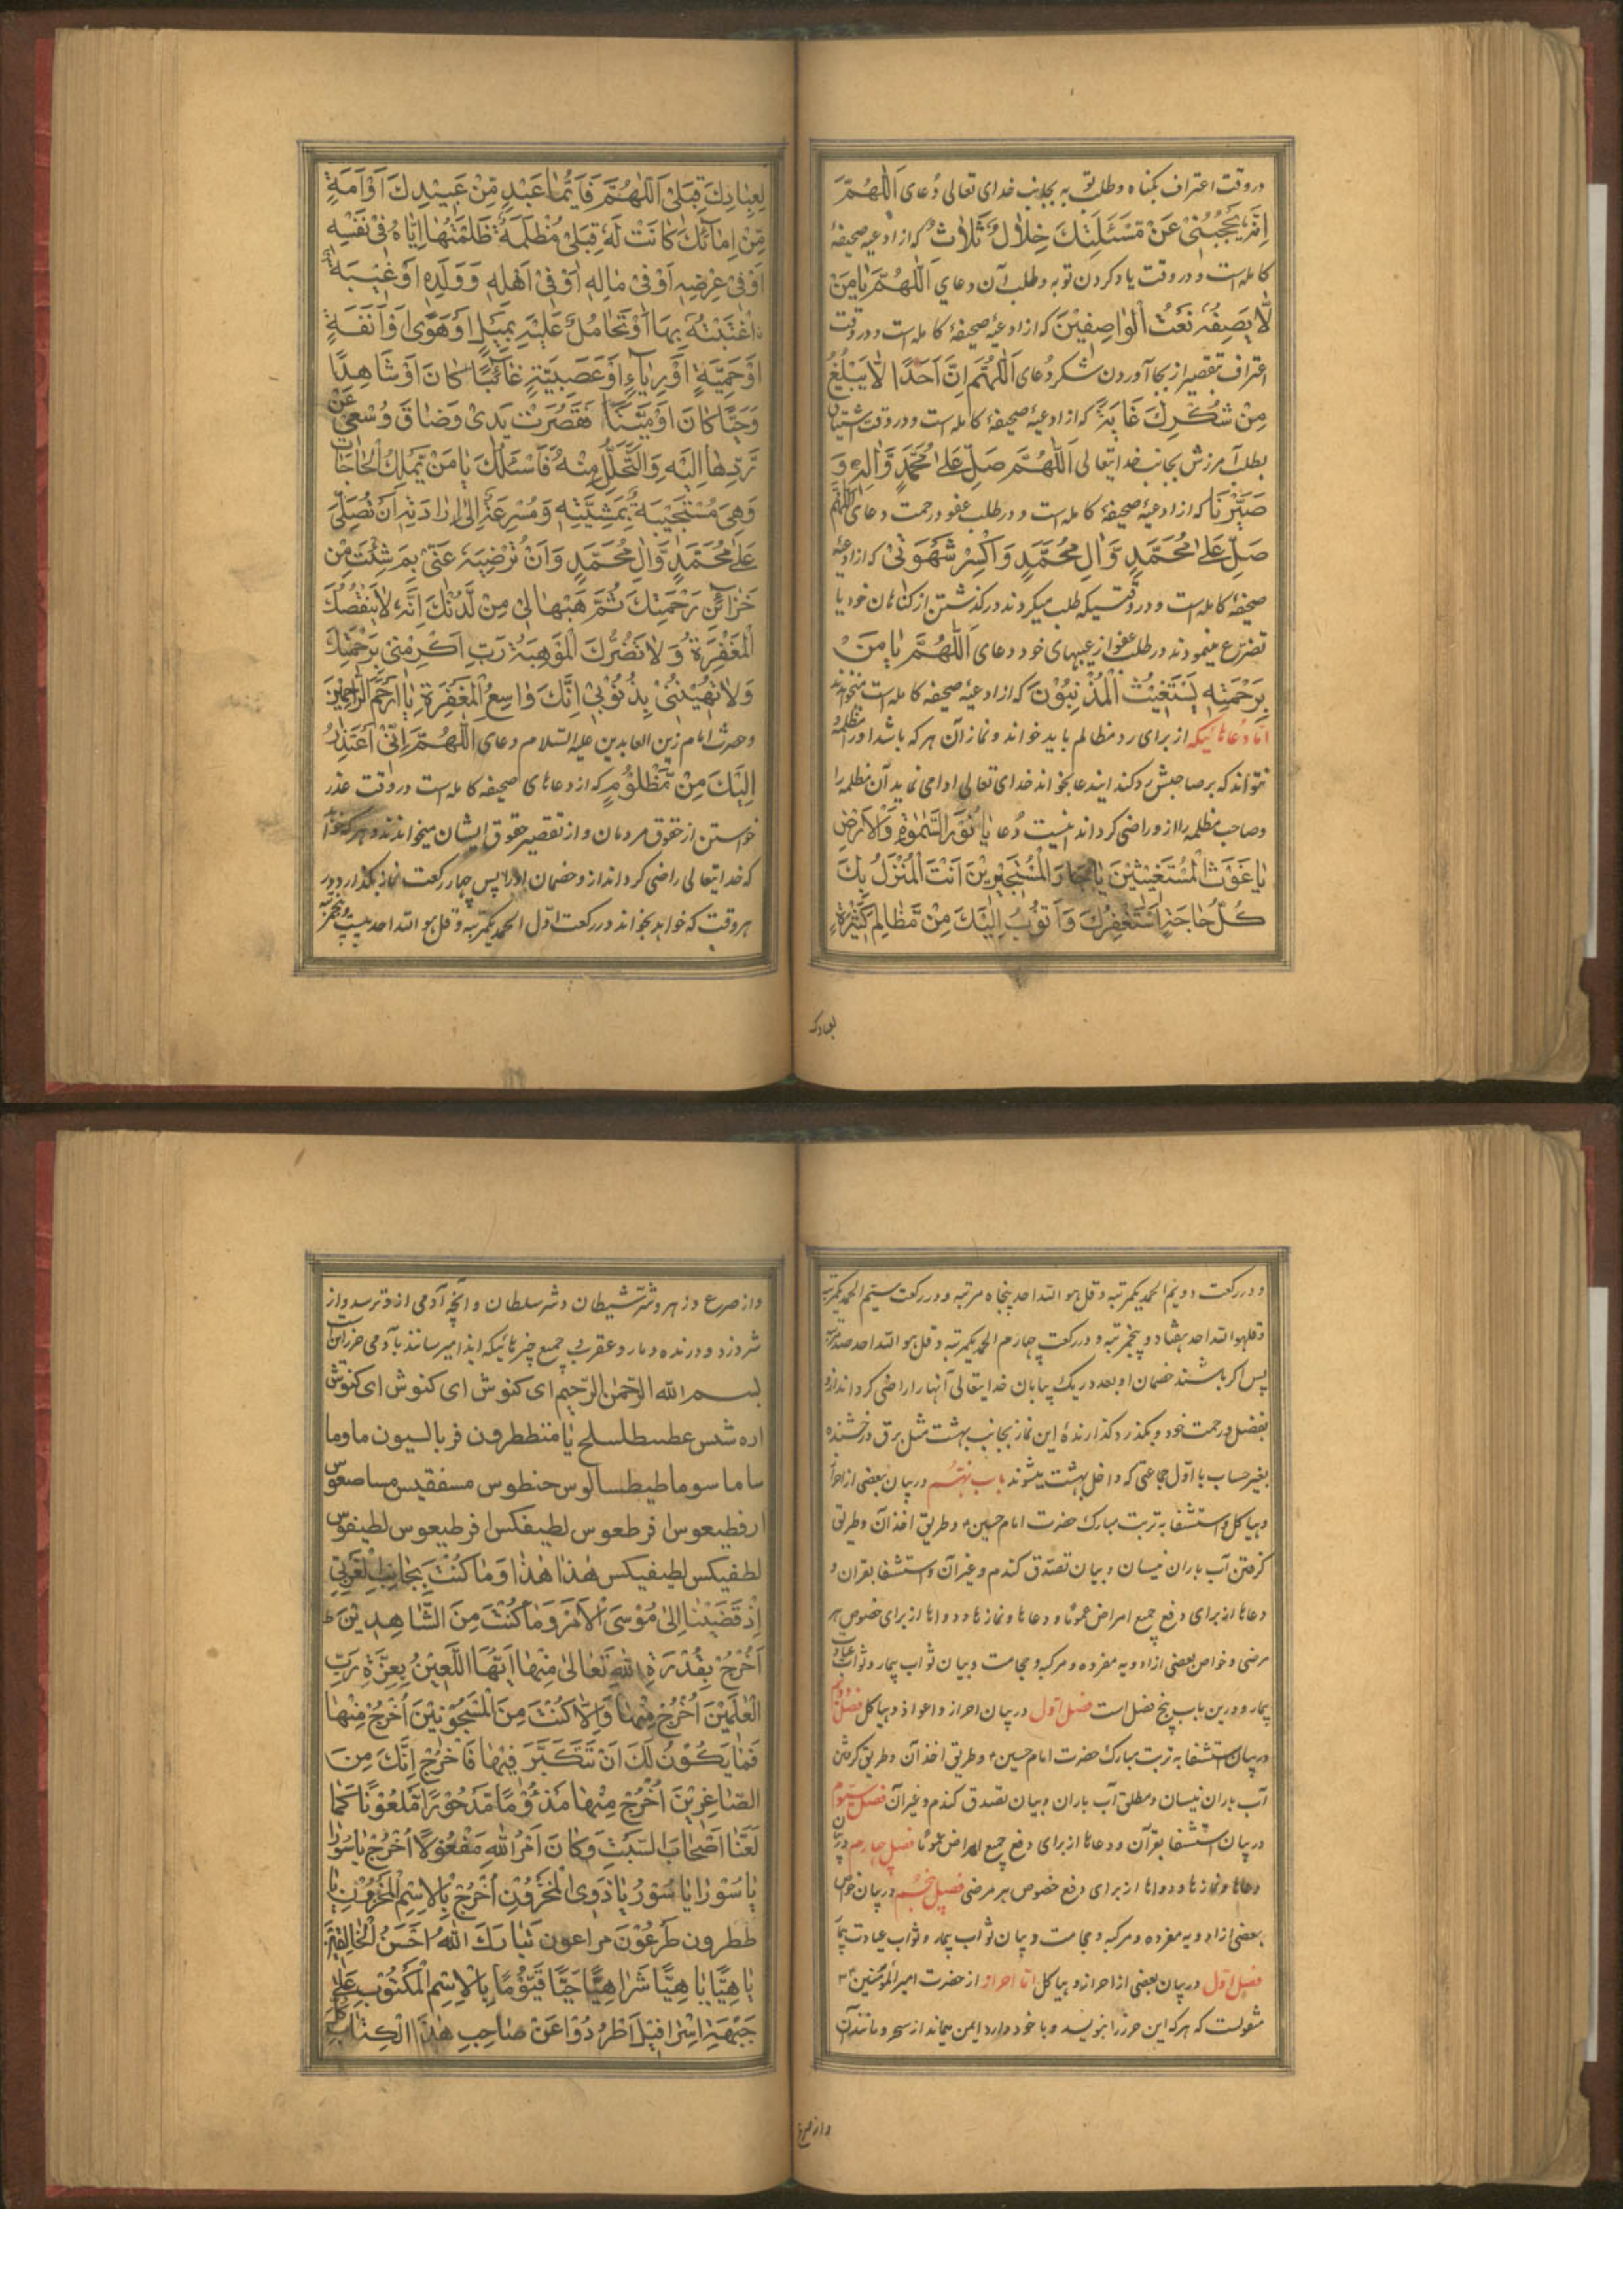 در وقت اعتراف بگناه و طلب توبه بجانب خدای تعالی دُعای اَللّٰهُمَّ
اِنَّهُ يَحْجُبُنِي عَنْ مَسْئَلَتِكَ خِلَالٌ ثَلَاثٌ که از ادعیهٔ صحیفهٔ
کامله است و در وقت یاد کردن توبه و طلب آن دعای اَللّٰهُمَّ يَا مَنْ
لَّا يَصِفُهُ نَعْتُ الْوَاصِفِيْنَ که از ادعیهٔ صحیفهٔ کامله است و در وقت
اعتراف بتقصیر از بجا آوردن شکر دُعای اَللّٰهُمَّ اِنَّ اَحَدًا لَّا يَبْلُغُ
مِنْ شُكْرِكَ غَايَةً که از ادعیهٔ صحیفهٔ کامله است و در وقت اشتیاق
بطلب آمرزش بجانب خدایتعالی اَللّٰهُمَّ صَلِّ عَلٰى مُحَمَّدٍ وَّاٰلِهٖ وَ
صَيِّرْنَا که از ادعیهٔ صحیفهٔ کامله است و در طلب عفو و رحمت دعای اَللّٰهُمَّ
صَلِّ عَلٰى مُحَمَّدٍ وَّاٰلِ مُحَمَّدٍ وَاكْسِرْ شَهْوَتِيْ که از ادعیهٔ
صحیفهٔ کامله است و در وقتیکه طلب میکردند در گذشتن از گناهان خود یا
تضرّع مینمودند در طلب عفو از عیبهای خود دعای اَللّٰهُمَّ يَا مَنْ
بِرَحْمَتِهٖ يَسْتَغِيْثُ الْمُذْنِبُوْنَ که از ادعیهٔ صحیفه کامله است میخواندند
امّا دُعائیکه از برای رد مظالم باید خواند و نماز آن هر که باشد او را مظلمهٔ
نتواند که بر صاحبش رد کند ایندعا بخواند خدای تعالی ادا می نماید آن مظلمه را
وصاحب مظلمه را از و راضی گرداند اینست دُعا يَا نُوْرَ السَّمٰوٰاتِ وَالْاَرْضِ
يَا غَوْثَ الْمُسْتَغِيْثِيْنَ يَا جَارَ الْمُسْتَجِيْرِيْنَ اَنْتَ الْمُنْزَلُ بِكَ
كُلُّ حَاجَةٍ اَسْتَغْفِرُكَ وَاَتُوْبُ اِلَيْكَ مِنْ مَّظَالِمَ كَثِيْرَةٍ
لعبادک
لِعِبَادِكَ قِبَلِيْ اَللّٰهُمَّ فَاَيُّمَا عَبْدٍ مِّنْ عَبِيْدِكَ اَوْ اَمَةٍ
مِّنْ اِمَائِكَ كَانَتْ لَهٗ قِبَلِيْ مَظْلِمَةٌ ظَلَمْتُهَا اِيَّاهُ فِيْ نَفْسِهٖ
اَوْ فِيْ عِرْضِهٖ اَوْ فِيْ مَالِهٖ اَوْ فِيْ اَهْلِهٖ وَوَلَدِهٖ اَوْ غِيْبَةٍ
اغْتَبْتُهٗ بِهَا اَوْ تَحَامُلٍ عَلَيْهِ بِمَيْلٍ اَوْ هَوًى اَوْ اَنَفَةٍ
اَوْ حَمِيَّةٍ اَوْ رِيَاءٍ اَوْ عَصَبِيَّةٍ غَائِبًا كَانَ اَوْ شَاهِدًا
وَحَيًّا كَانَ اَوْ مَيِّتًا فَقَصُرَتْ يَدِيْ وَضَاقَ وُسْعِيْ عَنْ
رَّدِّهَا اِلَيْهِ وَالتَّحَلُّلِ مِنْهُ فَاَسْئَلُكَ يَا مَنْ يَّمْلِكُ الْحَاجَاتِ
وَهِيَ مُسْتَجِيْبَةٌ بِمَشِيَّتِهٖ وَمُسْرِعَةٌ اِلٰى اِرَادَتِهٖ اَنْ تُصَلِّيَ
عَلٰى مُحَمَّدٍ وَّاٰلِ مُحَمَّدٍ وَاَنْ تُرْضِيَهٗ عَنِّيْ بِمَ شِئْتَ مِنْ
خَزَائِنِ رَحْمَتِكَ ثُمَّ هَبْهَا لِيْ مِنْ لَّدُنْكَ اِنَّهٗ لَا يَنْقُصُكَ
الْمَغْفِرَةُ وَلَا تَضُرُّكَ الْمَوْهِبَةُ رَبِّ اَكْرِمْنِيْ بِرَحْمَتِكَ
وَلَا تُهِيْنُنِيْ بِذُنُوْبِيْ اِنَّكَ وَاسِعُ الْمَغْفِرَةِ يَا اَرْحَمَ الرَّاحِمِيْنَ
وحضرت امام زین العابدین علیه السلام دعای اَللّٰهُمَّ اِنِّيْ اَعْتَذِرُ
اِلَيْكَ مِنْ مَّظْلُوْمٍ که از دعاهای صحیفه کامله است در وقت عذر
خواستن از حقوق مردمان و از تقصیر حقوق ایشان میخواندند و هر که خواهد
که خدایتعالی راضی گرداند از و خصمان او را پس چهار رکعت نماز بگذارد در
هر وقت که خواهد بخواند در رکعت اوّل الحمد یکمرتبه و قل هو الله احد بیست و پنجمرتبه
و در رکعت دویم الحمد یکمرتبه و قل هو الله احد پنجاه مرتبه و در رکعت سیّم الحمد یکمرتبه
و قل هو الله احد هفتاد و پنجمرتبه و در رکعت چهارم الحمد یکمرتبه و قل هو الله احد صد مرتبه
پس اگر باشند خصمان او بعدد ریک بیابان خدایتعالی آنها را راضی گرداند از و
بفضل و رحمت خود و بگذرد گذارندهٔ این نماز بجانب بهشت مثل برق درخشنده
بغیر حساب با اوّل جماعتی که داخل بهشت میشوند باب نهُم در بیان بعضی از احراز
و هیاکل و استشفا به تربت مبارک حضرت امام حسین ع و طریق اخذ آن و طریق
گرفتن آب باران نیسان و بیان تصدّق گندم و غیر آن و استشفا بقران و
دعاها از برای دفع جمیع امراض عمومًا و دعاها و نمازها و دواها از برای خصوص هر
مرضی و خواص بعضی از ادویه مفرده و مرکبه و حجامت و بیان ثواب بیمار و ثواب عیادت
بیمار و درین باب پنج فصل است فصل اوّل در بیان احراز و اعواذ و هیاکل فصل دویم
در بیان استشفا به تربت مبارک حضرت امام حسین ع و طریق اخذ آن و طریق گرفتن
آب باران نیسان و مطلق آب باران و بیان تصدق گندم و غیر آن فصل سیوم
در بیان استشفا بقرآن و دعاها از برای دفع جمیع امراض عمومًا فصل چهارم در بیان
دعاها و نمازها و دواها از برای دفع خصوص هر مرضی فصل پنجم در بیان خواص
بعضی از ادویه مفرده و مرکبه و حجامت و بیان ثواب بیمار و ثواب عیادت بیمار
فصل اوّل در بیان بعضی از احراز و هیاکل امّا احراز از حضرت امیرالمؤمنین ع
منقولست که هر که این حرز را بنویسد و با خود دارد ایمن بماند از سحر و مانند آن
و از صرع
و از صرع و زهر و شرّ شیطان و شرّ سلطان و آنچه آدمی از و ترسد و از
شر دزد و درنده و مار و عقرب و جمیع چیزهائیکه ایذا میرسانند بآدمی حرز اینست
بسم الله الرّحمٰن الرّحیم ای کنوش ای کنوش ای کنوش
اره شش عطسطلسلح یا منططرون فربالسیون ماوما
ساما سوما طیطسالوس حنطوس مسفقیس مساصعوس
ارفطیعوس افرطعوس لطیفکس افرطیعوس لطیفوس
لطفیکس لطیفیکس هٰذا هٰذا وَمَا كُنْتَ بِجَانِبِ الْغَرْبِيِّ
اِذْ قَضَيْنَا اِلٰى مُوْسَى الْاَمْرَ وَمَا كُنْتَ مِنَ الشَّاهِدِيْنَ
اُخْرُجْ بِقُدْرَةِ اللهِ تَعَالٰى مِنْهَا اَيُّهَا اللَّعِيْنُ بِعِزَّةِ رَبِّ
الْعٰلَمِيْنَ اُخْرُجْ مِنْهَا وَاِلَّا كُنْتَ مِنَ الْمَسْجُوْنِيْنَ اُخْرُجْ مِنْهَا
فَمَا يَكُوْنُ لَكَ اَنْ تَتَكَبَّرَ فِيْهَا فَاخْرُجْ اِنَّكَ مِنَ
الصَّاغِرِيْنَ اُخْرُجْ مِنْهَا مَذْؤُمًا مَّدْحُوْرًا مَّلْعُوْنًا كَمَا
لَعَنَّا اَصْحَابَ السَّبْتِ وَكَانَ اَمْرُ اللهِ مَفْعُوْلًا اُخْرُجْ يَا سُوْرَا
يَا سُوْرَا يَا سُوْرُ يَا ذَوِي الْمَخْزُوْنِ اُخْرُجْ بِالْاِسْمِ الْمَخْزُوْنِ يَا
ططرون طَرْعُوْنَ مراعون تَبَارَكَ اللهُ اَحْسَنُ الْخَالِقِيْنَ
يَا هِيًّا يَا هِيًّا شَرَاهِيًّا حَيًّا قَيُّوْمًا بِالْاِسْمِ الْمَكْتُوْبِ عَلٰى
جَبْهَةِ اِسْرَافِيْلَ اُطْرُدُوْا عَنْ صَاحِبِ هٰذَا الْكِتَابِ كُلَّ